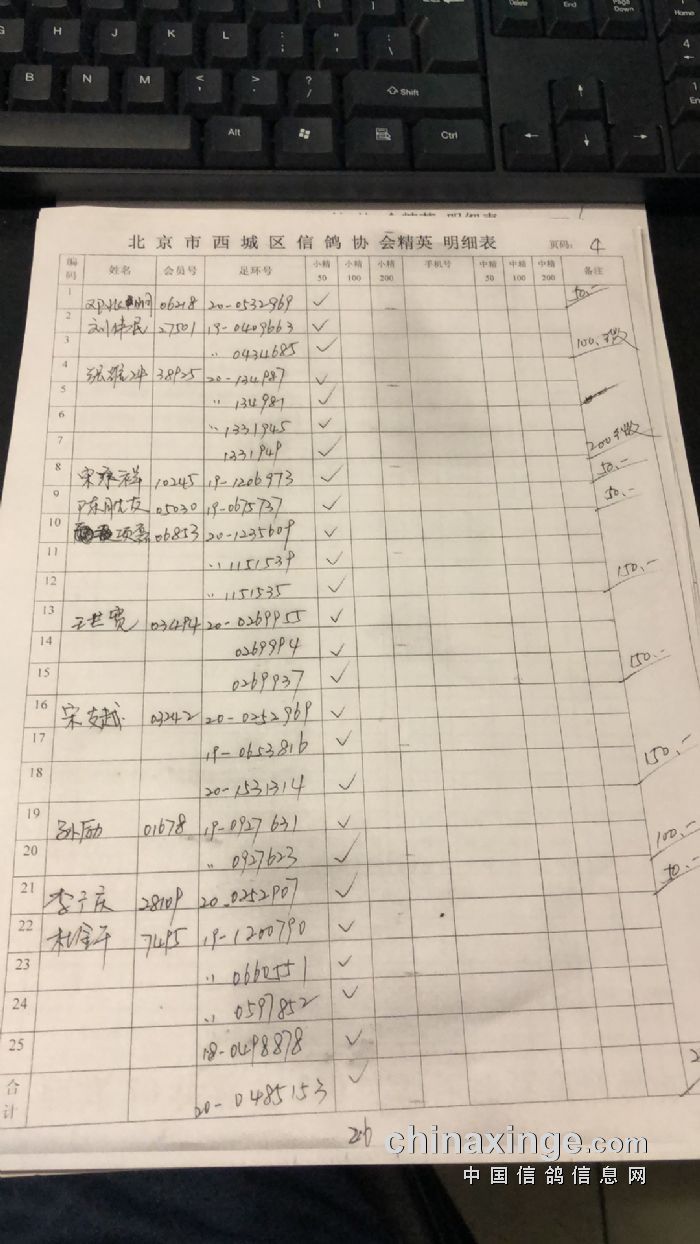 H J K L : ; " ' | \ End Page Down Home
B N M < , > . ? / Shift 4
Alt Ctrl 1 End
北京市西城区信鸽协会精英 明细表 页码: 4
编码 姓名 会员号 足环号 小精50 小精100 小精200 手机号 中精50 中精100 中精200 备注
1 06218 20-0532969 ✓ 50.-
2 刘伟民 27501 19-0409663 ✓
3 〃 0434685 ✓ 100.
4 38925 20-134987 ✓
5 〃 134981 ✓
6 〃 1331945 ✓
7 1331949 ✓ 200
8 10245 19-1206973 ✓ 50.-
9 05030 19-0675737 ✓ 50.-
10 06853 20-1235609 ✓
11 〃 1151539 ✓
12 〃 1151535 ✓ 150.-
13 03494 20-0269955 ✓
14 0269994 ✓
15 0269937 ✓ 150.-
16 03242 20-0252969 ✓
17 19-0653816 ✓
18 20-1531314 ✓ 150.-
19 孙励 01678 19-0927631 ✓
20 〃 0927623 ✓ 100.-
21 28109 20-0252907 ✓ 50.-
22 7495 19-1200790 ✓
23 〃 0660551 ✓
24 〃 0597852 ✓
25 18-0498878 ✓
合计 20-0485153 ✓ 2
26
chinaxinge.com
中国信鸽信息网